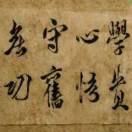 學貴
心悟
守舊
無功